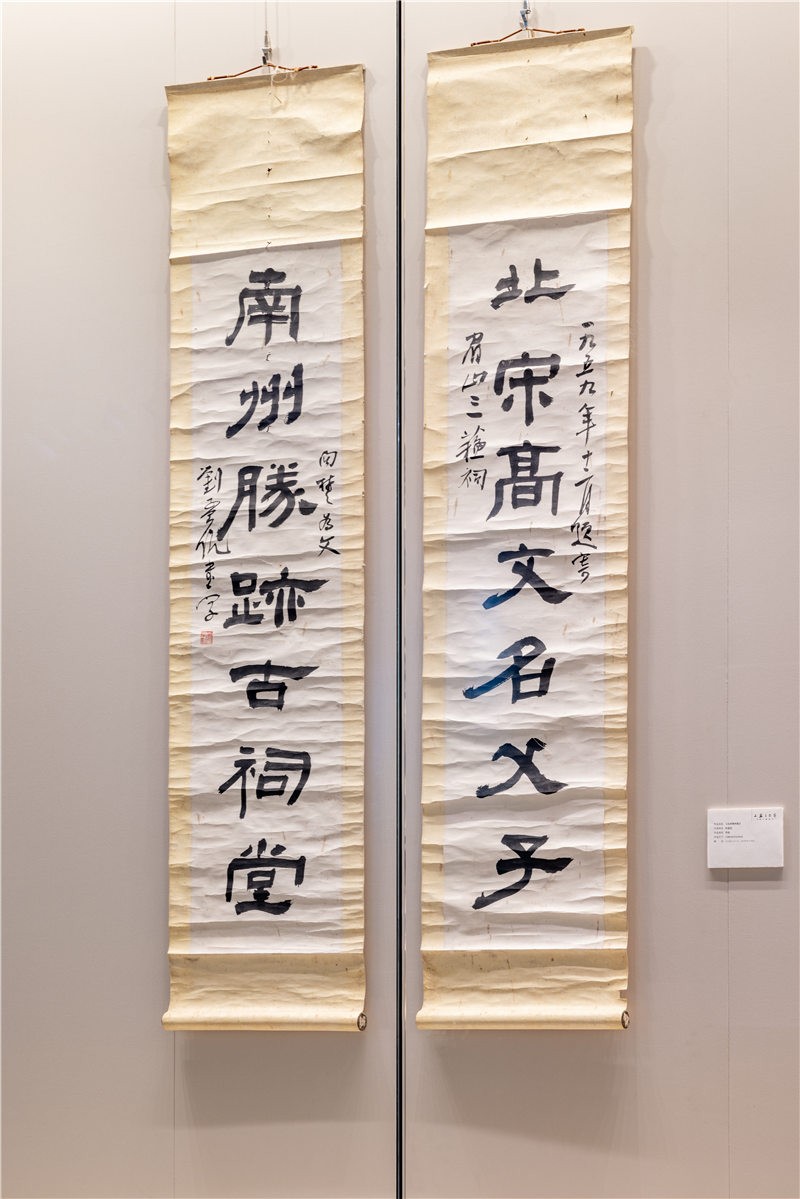 一九五九年十一月題寄
北宋髙文名父子
眉山三蘇祠
向楚為文
南州勝跡古祠堂
劉孟伉書字